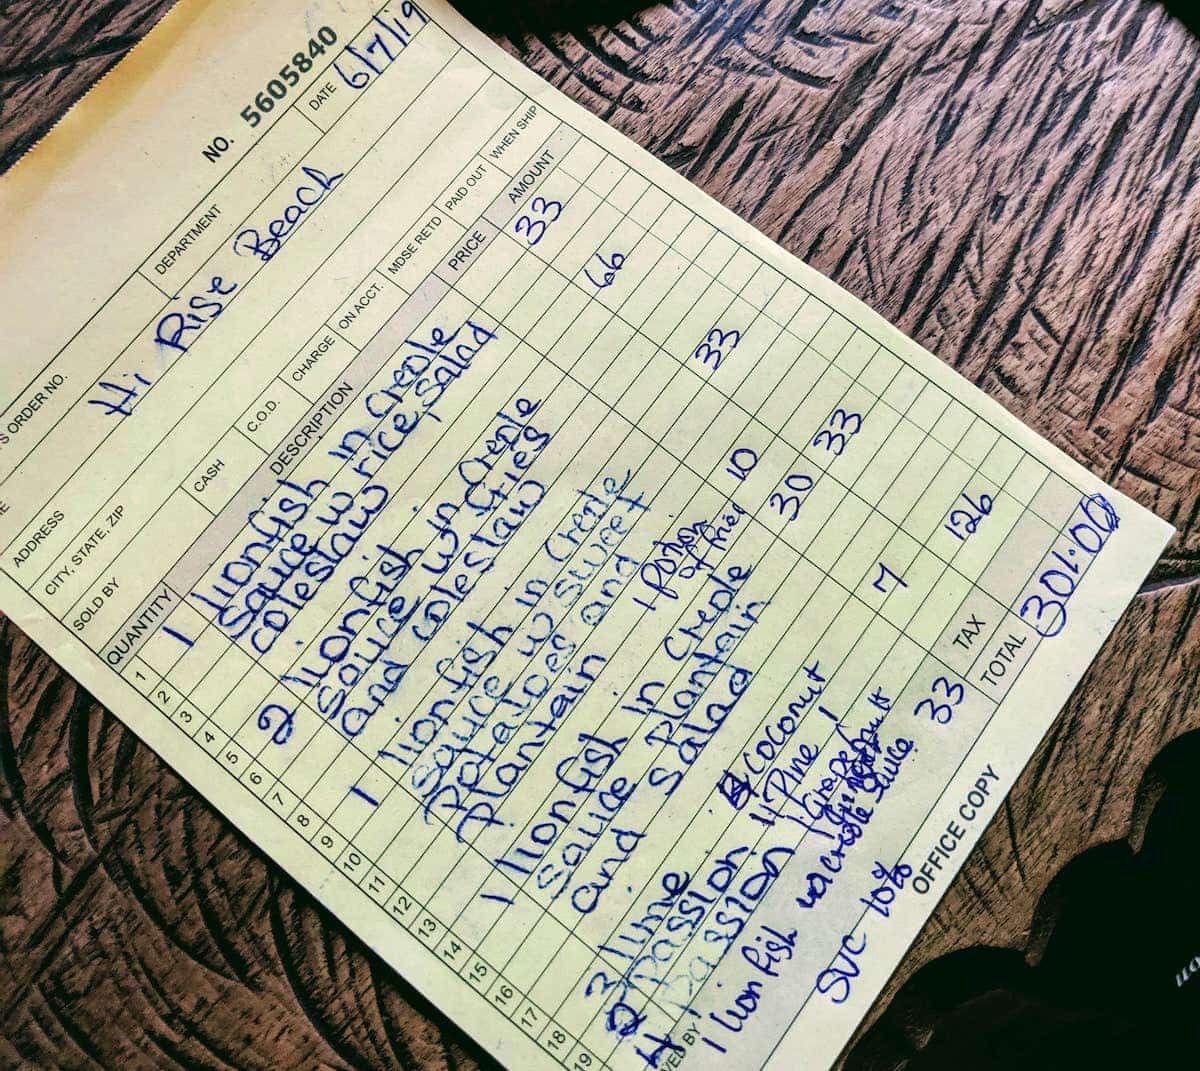 NO. 5605840
S ORDER NO.
DEPARTMENT
DATE 6/7/19
Hi Rise Beach
ADDRESS
CITY, STATE, ZIP
SOLD BY
CASH
C.O.D.
CHARGE
ON ACCT.
MDSE RETD
PAID OUT
WHEN SHIP
QUANTITY
DESCRIPTION
PRICE
AMOUNT
1
2
3
4
5
6
7
8
9
10
11
12
13
14
15
16
17
18
19
1 lionfish in Creole 33
Sauce w rice, Salad
coleslaw
2 lionfish in Creole 66
Sauce w fries
and coleslaw
1 lionfish in Creole 33
Sauce w Sweet
Potatoes and
Plantain 1 portion of fried 10
1 lionfish in Creole 33
Sauce Plantain
and Salad
30
3 lime coconut
2 Passion 11 Pine 7
4 Passion 1 Grape 1
126
1 lionfish w creole Sauce 33
VED BY
TAX
SVC 10%
TOTAL 301.00
OFFICE COPY